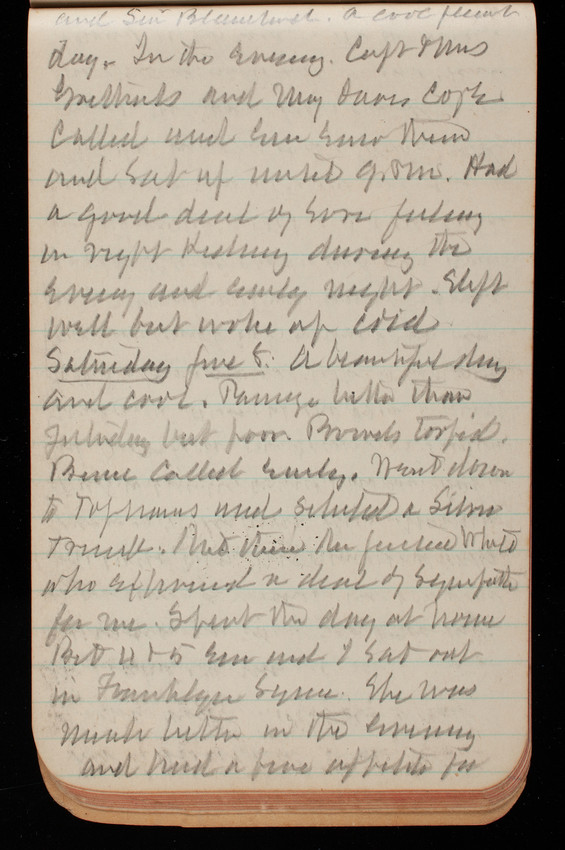 and Blanchard. a cool pleasant
day. In the Evening. Capt & Mrs
and May Davis Cope
Called and Em saw them
and Sat up until 9 P.M. Had
a good deal of Sore feeling
in right Kidney during the
Evening and early night. Slept
well but woke up cold
Saturday June 8. A beautiful day
and cool. better than
yesterday but poor. Bowels torpid.
Called Early. Went down
to and selected a Silver
. Met there White
who expressed a deal of Sympathy
for me. Spent the day at home
Bet 4 & 5 Em and I Sat out
in Franklyn Square. She was
much better in the evening
and had a fine appetite for